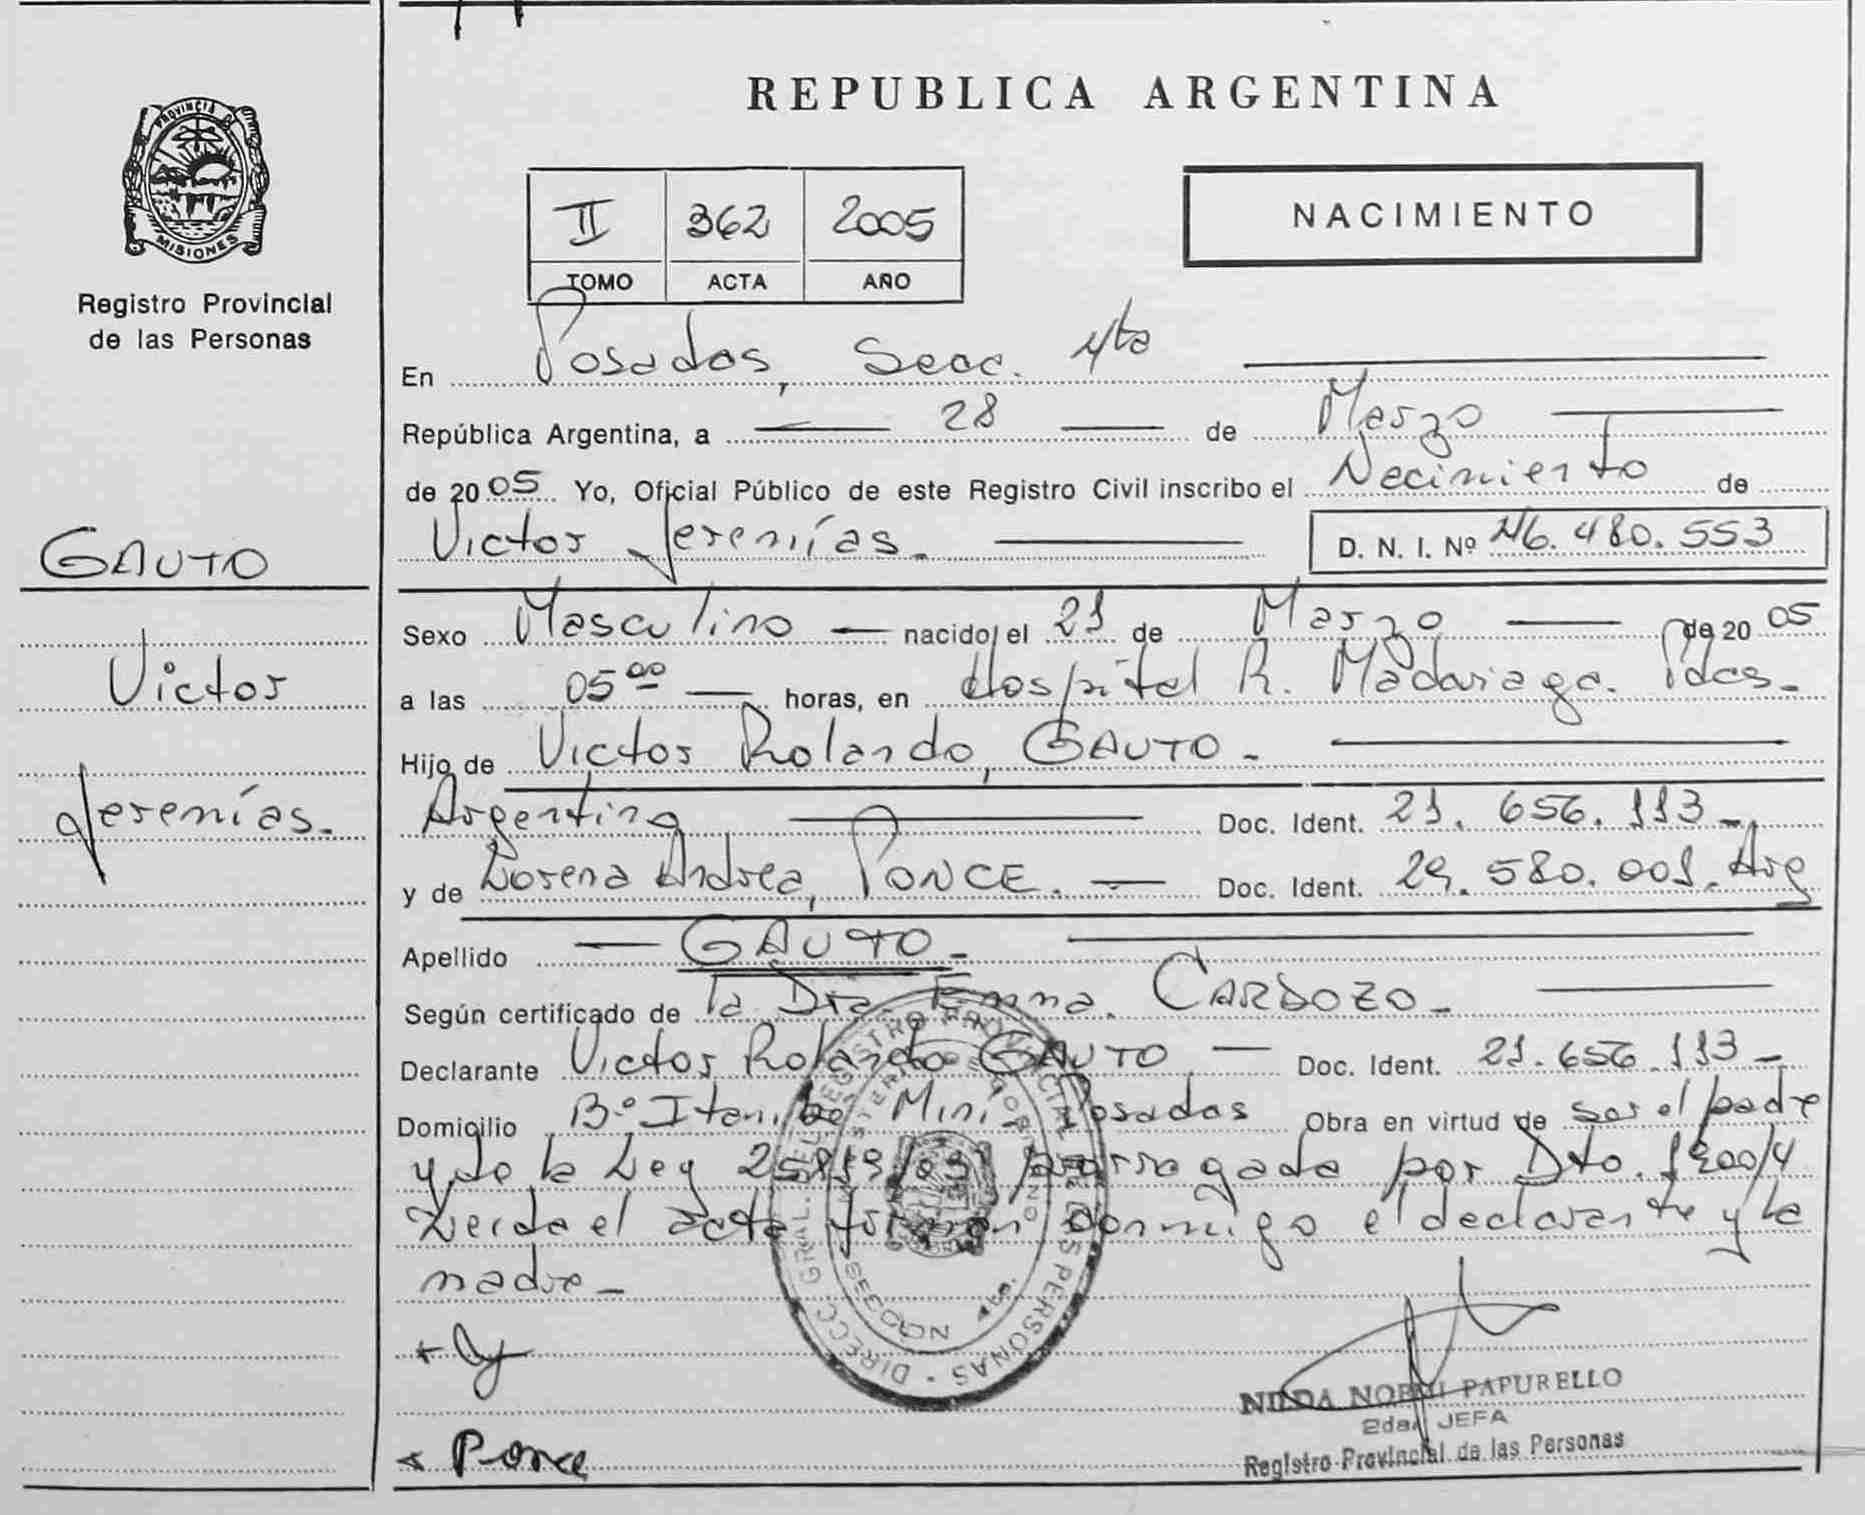 REPUBLICA ARGENTINA
PROVINCIA DE
MISIONES
Registro Provincial
de las Personas
II 362 2005
TOMO ACTA AÑO
NACIMIENTO
En Posadas, Secc. 4ta
República Argentina, a 28 de Marzo
de 2005 Yo, Oficial Público de este Registro Civil inscribo el Nacimiento de
Victor Jeremías.
D. N. I. Nº 46.480.553
GAUTO
Victor
Jeremías.
Sexo Masculino nacido el 21 de Marzo de 2005
a las 05 00 horas, en Hospital R. Madariaga. Pdas.
Hijo de Victor Rolando, GAUTO
Argentino Doc. Ident. 21.656.113
y de Lorena Andrea, PONCE. Doc. Ident. 29.580.001. Arg
Apellido GAUTO
Según certificado de la Dra. Emma. CARDOZO
Declarante Victor Rolando GAUTO Doc. Ident. 21.656.113
Domicilio Bº Itaembé Mini Posadas Obra en virtud de ser el padre
y de la Ley 25819/03 prorrogada por Dto. 1200/4
Leida el acta firman conmigo el declarante y la
madre
Ponce
DIRECC. GRAL. DEL REGISTRO PROVINCIAL DE LAS PERSONAS
MINISTERIO DE GOBIERNO
SECCION 4ta.
NILDA NOEMI PAPURELLO
2da. JEFA
Registro Provincial de las Personas